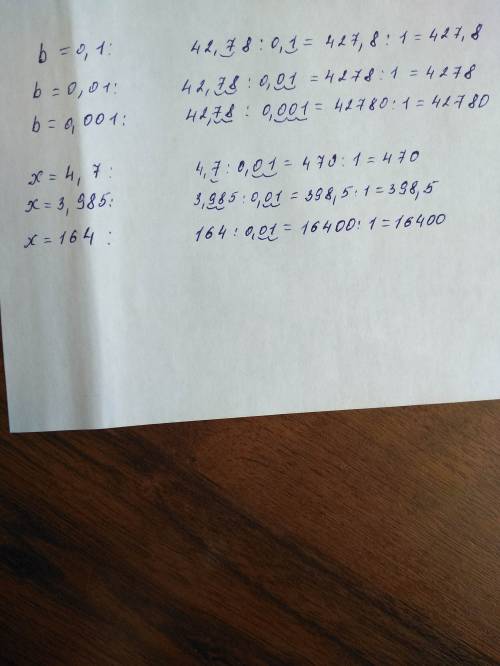 b = 0,1: 42,78 : 0,1 = 427,8 : 1 = 427,8
b = 0,01: 42,78 : 0,01 = 4278 : 1 = 4278
b = 0,001: 42,78 : 0,001 = 42780 : 1 = 42780
x = 4,7: 4,7 : 0,01 = 470 : 1 = 470
x = 3,985: 3,985 : 0,01 = 398,5 : 1 = 398,5
x = 164 : 164 : 0,01 = 16400 : 1 = 16400